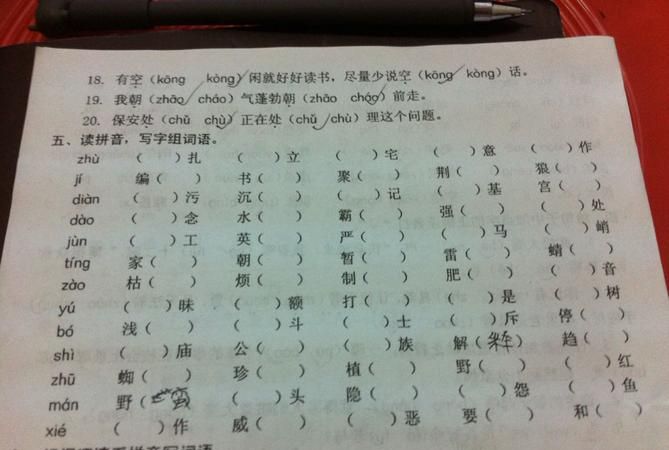 18. 有空（kōng kòng）闲就好好读书，尽量少说空（kōng kòng）话。
19. 我朝（zhāo cháo）气蓬勃朝（zhāo cháo）前走。
20. 保安处（chǔ chù）正在处（chǔ chù）理这个问题。
五、读拼音，写字组词语。
zhù （ ）扎 （ ）立 （ ）宅 （ ）意 （ ）作
jí 编（ ） 书（ ） 聚（ ） 荆（ ） 狼（ ）
diàn （ ）污 沉（ ） （ ）记 （ ）基 宫（ ）
dào （ ）念 水（ ） 霸（ ） 强（ ） （ ）处
jùn （ ）工 英（ ） 严（ ） （ ）马 （ ）峭
tíng 家（ ） 朝（ ） 暂（ ） 雷（ ） 蜻（ ）
zào 枯（ ） 烦（ ） 制（ ） 肥（ ） （ ）音
yú （ ）昧 （ ）额 打（ ） （ ）是 （ ）树
bó 浅（ ） （ ）斗 （ ）士 （ ）斥 停（ ）
shì （ ）庙 公（ ） （ ）族 解（ ） 趋（ ）
zhū 蜘（ ） 珍（ ） 植（ ） 野（ ） （ ）红
mán 野（ ） （ ）头 隐（ ） （ ）怨 （ ）鱼
xié （ ）作 威（ ） （ ）恶 要（ ） 和（ ）